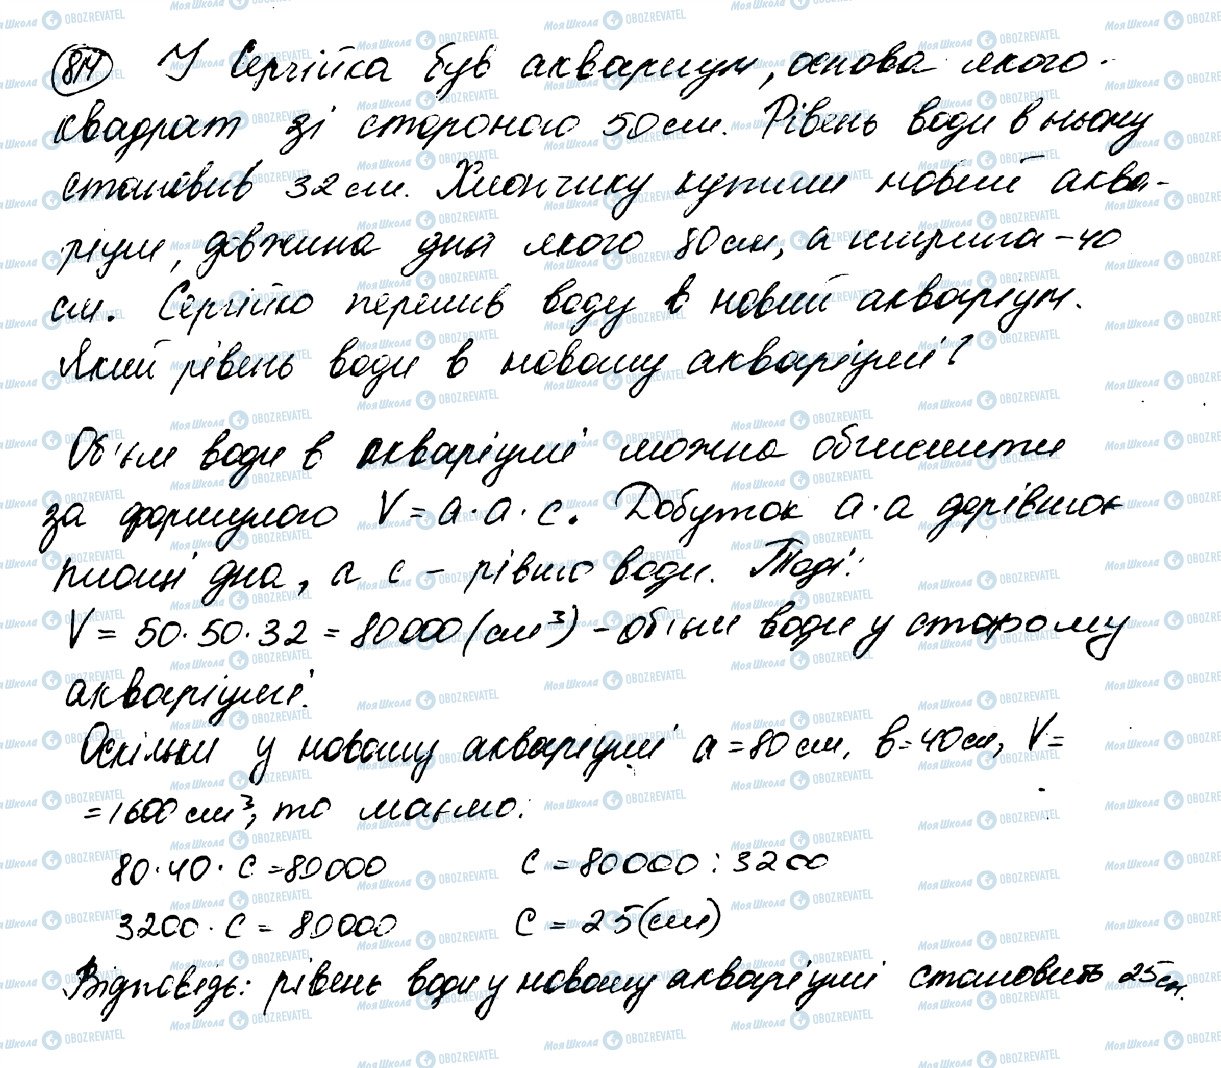 817 У Сергійка був акваріум, основа якого -
квадрат зі стороною 50 см. Рівень води в ньому
становив 32 см. Хлопчику купили новий аква-
ріум, довжина дна якого 80 см, а ширина - 40
см. Сергійко перелив воду в новий акваріум.
Який рівень води в новому акваріумі?
Об'єм води в акваріумі можна обчислити
за формулою V = a · a · c. Добуток a · a дорівнює
площі дна, а c - рівню води. Тоді:
V = 50 · 50 · 32 = 80000 (см³) - об'єм води у старому
акваріумі.
Оскільки у новому акваріумі a = 80 см, в = 40 см, V =
= 1600 см³, то маємо:
80 · 40 · c = 80000 c = 80000 : 3200
3200 · c = 80000 c = 25 (см)
Відповідь: рівень води у новому акваріумі становить 25 см.